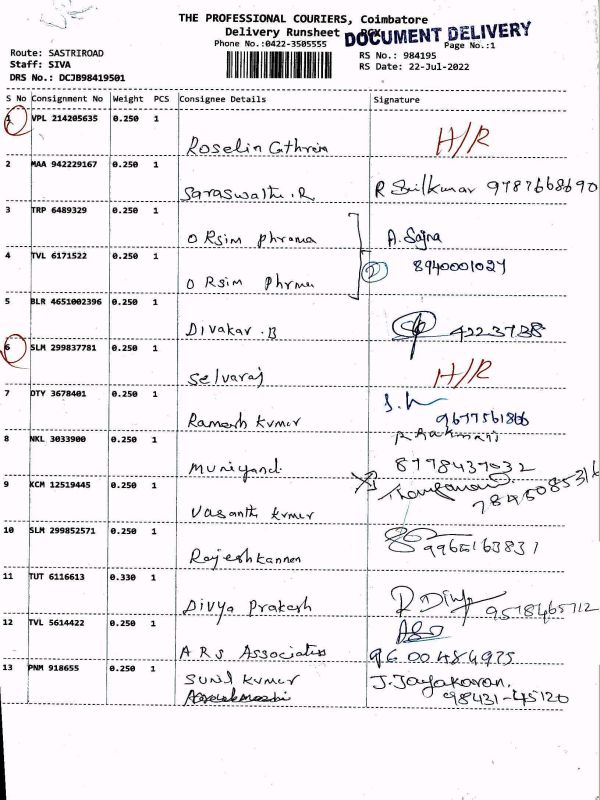 THE PROFESSIONAL COURIERS, Coimbatore
Delivery Runsheet - BOX
DOCUMENT DELIVERY
Phone No.:0422-3505555
Page No.:1
Route: SASTRIROAD
RS No.: 984195
Staff: SIVA
RS Date: 22-Jul-2022
DRS No.: DCJB98419501
S No Consignment No Weight PCS Consignee Details Signature
1 VPL 214205635 0.250 1
Roselin Cathrein H/R
2 MAA 942229167 0.250 1
Saraswathi.R R 9787668690
3 TRP 6489329 0.250 1
ORsim phrama A. Sajna
4 TVL 6171522 0.250 1 2 8940001027
ORsim Phrma
5 BLR 4651002396 0.250 1
Divakar.B 4223738
6 SLM 299837781 0.250 1
Selvaraj H/R
7 OTY 3678401 0.250 1
Ramesh kumar 9677561866
8 NKL 3033900 0.250 1
Muniyandi 8778437032
9 KCM 12519445 0.250 1
Vasanth kumar 7845085316
10 SLM 299852571 0.250 1
Rajeshkannan 9965163831
11 TUT 6116613 0.330 1
Divya Prakash 9578465712
12 TVL 5614422 0.250 1
ARS Associates 9600484975
13 PNM 918655 0.250 1
Sunil kumar J. Jayakaran.
98431-45120